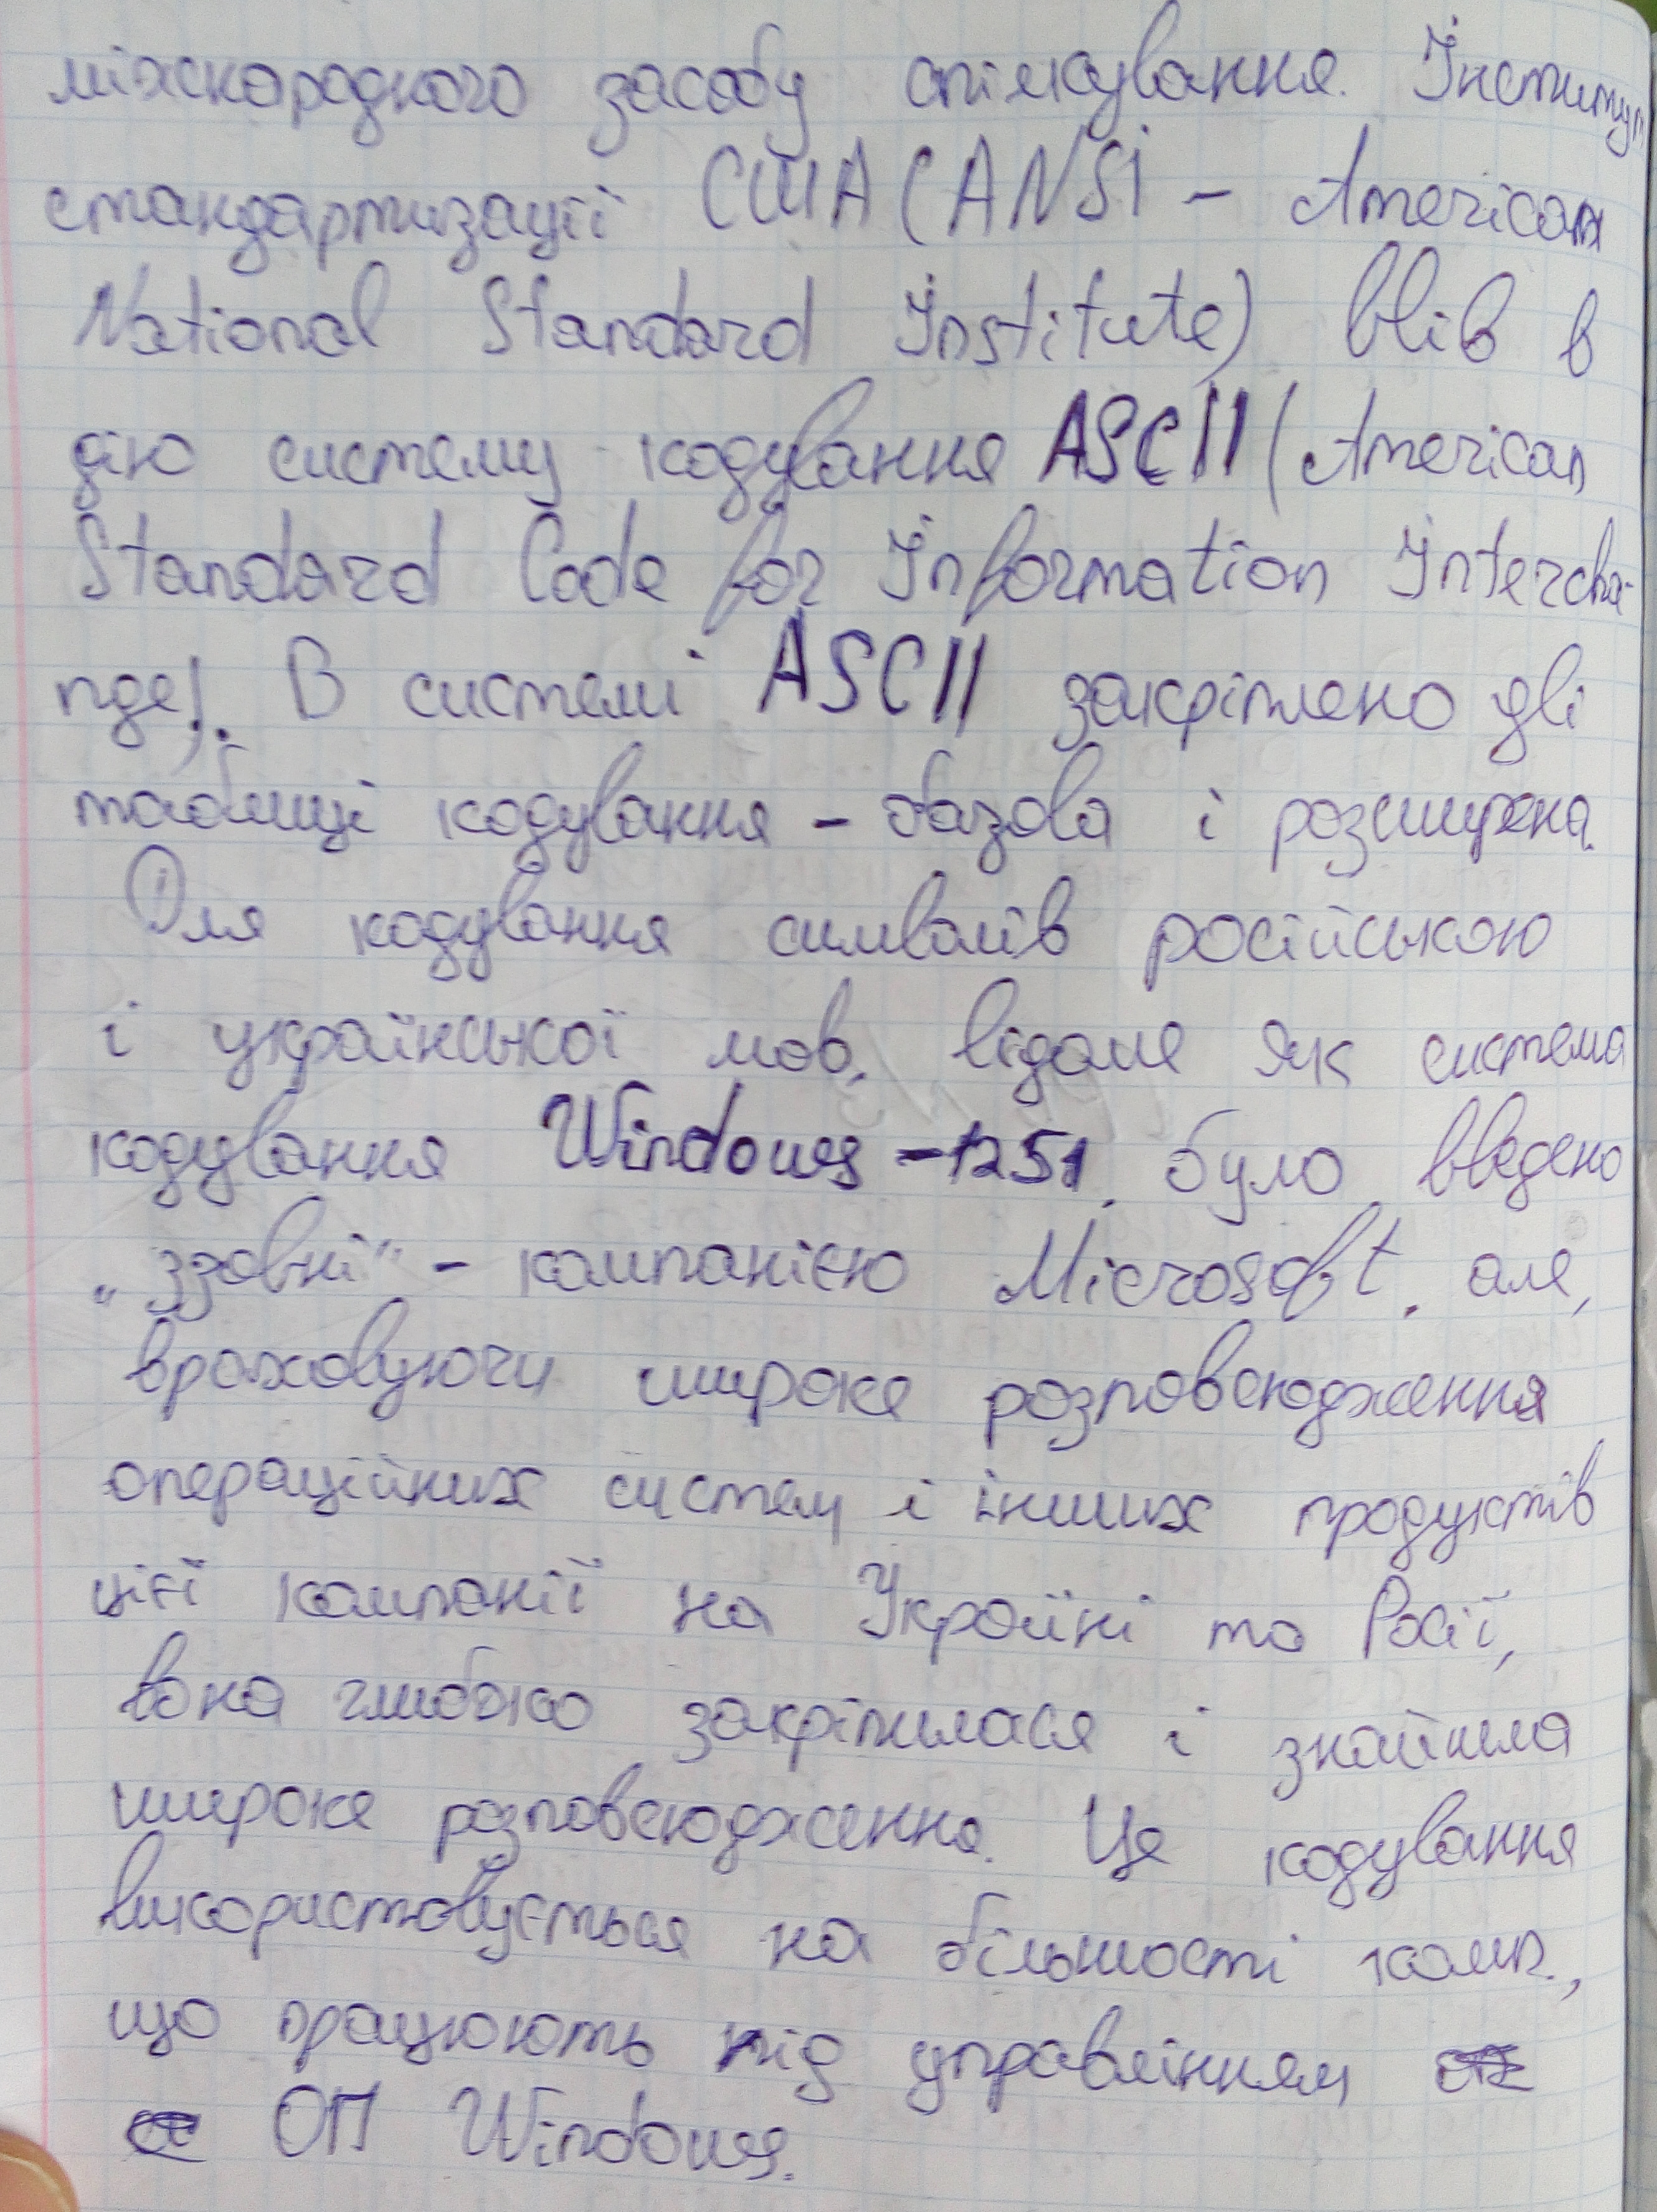 міжнародного засобу спілкування. Інститут
стандартизації США (ANSI – American
National Standard Institute) ввів в
дію систему кодування ASCII (American
Standard Code for Information Intercha-
nge). В системі ASCII закріплено дві
таблиці кодування – базова і розширена.
Для кодування символів російською
і української мов, відоме як система
кодування Windows – 1251, було введено
„ззовні" – компанією Microsoft, але,
враховуючи широке розповсюдження
операційних систем і інших продуктів
цієї компанії на Україні та Росії,
вона глибоко закріпилася і знайшла
широке розповсюдження. Це кодування
використовується на більшості комп.,
що працюють під управлінням
ОП Windows.